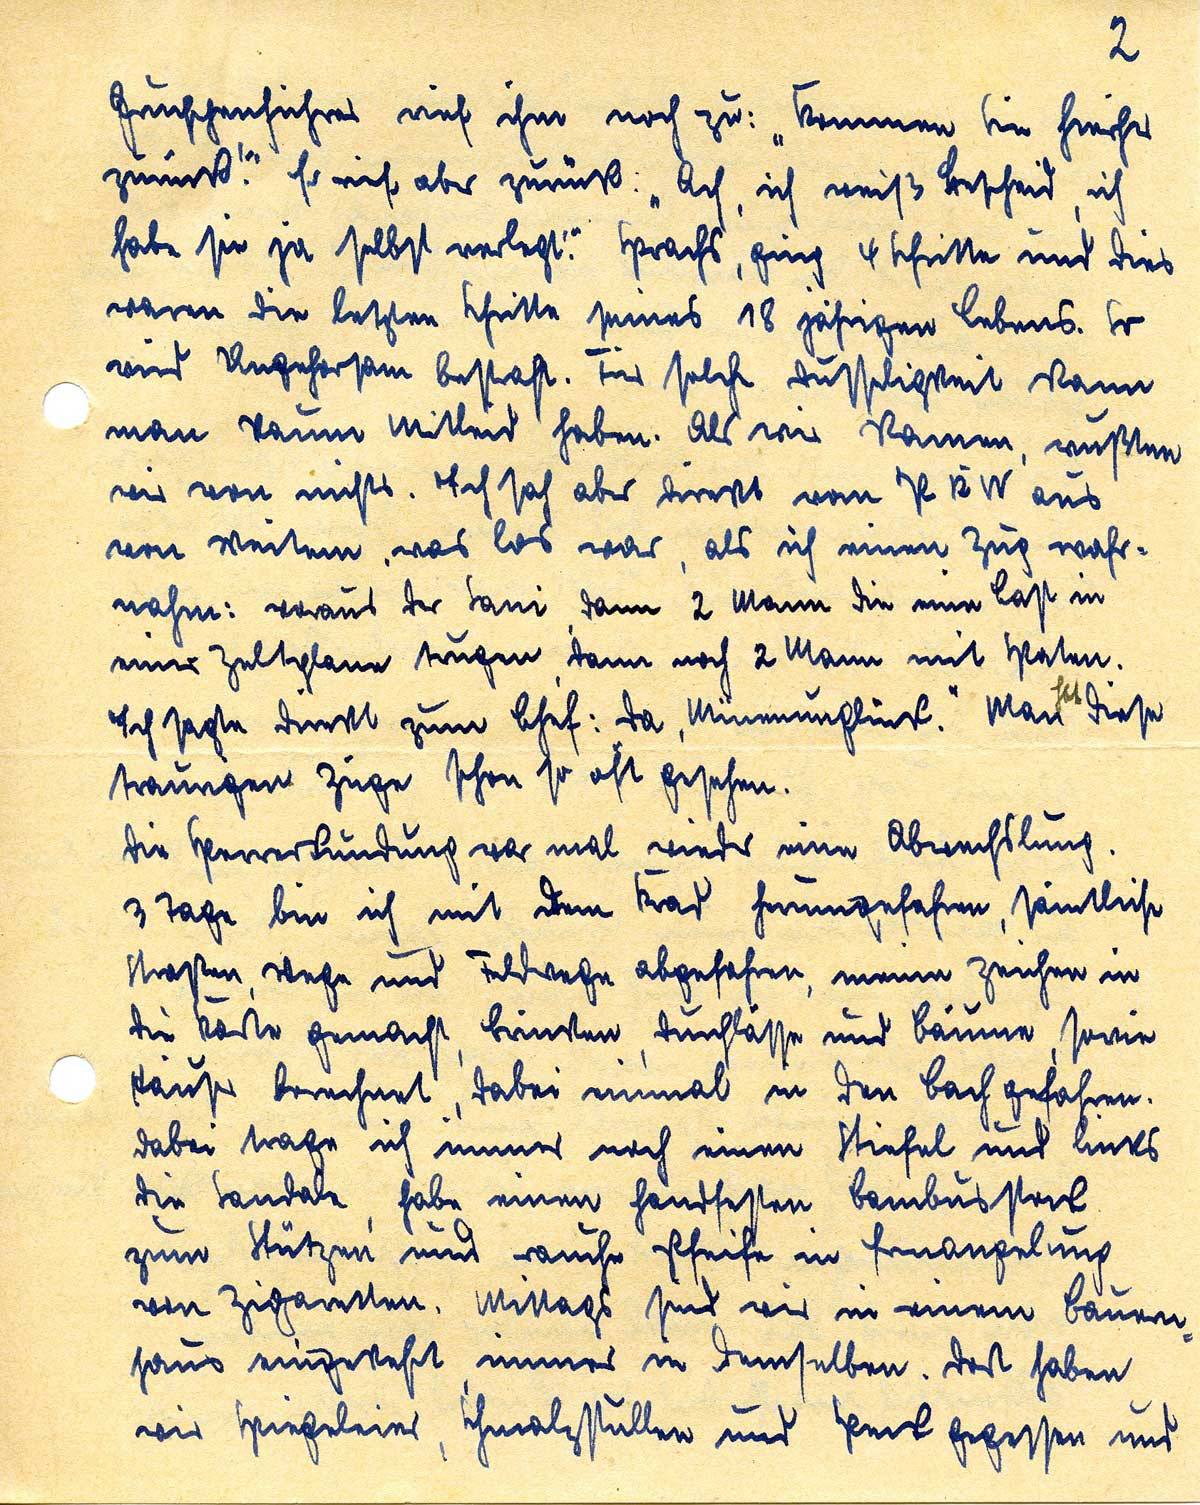 2
Gruppenführer rief ihm noch zu: „Kommen Sie hierher
zurück!" Er rief aber zurück: „Ach, ich weiß Bescheid, ich
habe sie ja selbst verlegt!" Sprachs, ging 4 Schritte und dies
waren die letzten Schritte seines 18 jährigen Lebens. So
wird Ungehorsam bestraft. Für solche Dusseligkeit kann
man kaum Mitleid haben. Als wir kamen, wußten
wir von nichts. Ich sah aber direkt vom PKW aus
von weitem, was los war, als ich einen Zug wahr-
nahm: voraus der Sani, dann 2 Mann die eine Last in
einer Zeltplane trugen, dann noch 2 Mann mit Spaten.
Ich sagte direkt zum Chef: Da, Minenunglück." Man hat diese
traurigen Züge schon so oft gesehen.
Die Sperrerkundung war mal wieder eine Abwechslung.
3 Tage bin ich mit dem Krad herumgefahren, sämtliche
Straßen, Wege und Feldwege abgefahren, meine Zeichen in
die Karte gemacht, Brücken, Durchlässe und Bäume, sowie
Häuser berechnet, dabei einmal in den Bach gefahren.
Dabei trage ich immer noch einen Stiefel und links
die Sandale, habe einen handfesten Bambusstock
zum Stützen und rauche Pfeife in Ermangelung
von Zigaretten. Mittags sind wir in einem Bauern-
haus eingekehrt, immer in demselben. Dort haben
wir Spiegeleier, Schmalzstullen und Speck gegessen und